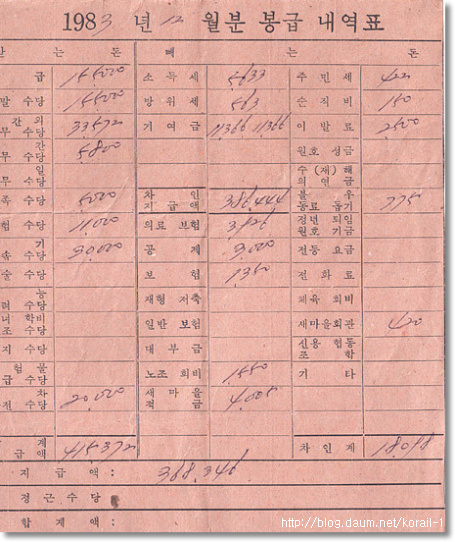 1983 년 12 월분 봉급 내역표
는 돈 빼 는 돈
급 155000 소득세 5633 주민세 422
말 수당 155000 방위세 563 순직비 150
간 외
무 수당 33572 기여금 11,366 11,366 이발료 2500
간
무 수당 5800 월호 성금
일
무 수당 수 (재) 해
의 연금
족 수당 5000 차 인
지 급 액 386,444 불 우
동료 돕기 7750
험 수당 11,000 의료 보험 3,126 정면 퇴임
월호기금
기
속 수당 30,000 공 제 9,000 전등 요금
술 수당 보 험 1350 전 화 료
능
려 수당 재형 저축 체육 회비
녀 학비
조 수당 일반 보험 새마을회관 420
지 수당 대 부 금 신용 협동
조 합
험 물
급 수당 노조 회비 1550 기 타
차
전 수당 20,000 새 마 을
적 금 4,005
계
급 액 415,372 차인계 18,098
지 급 액 : 368,346
정 근 수 당
합 계 액 :
http://blog.daum.net/korail-1